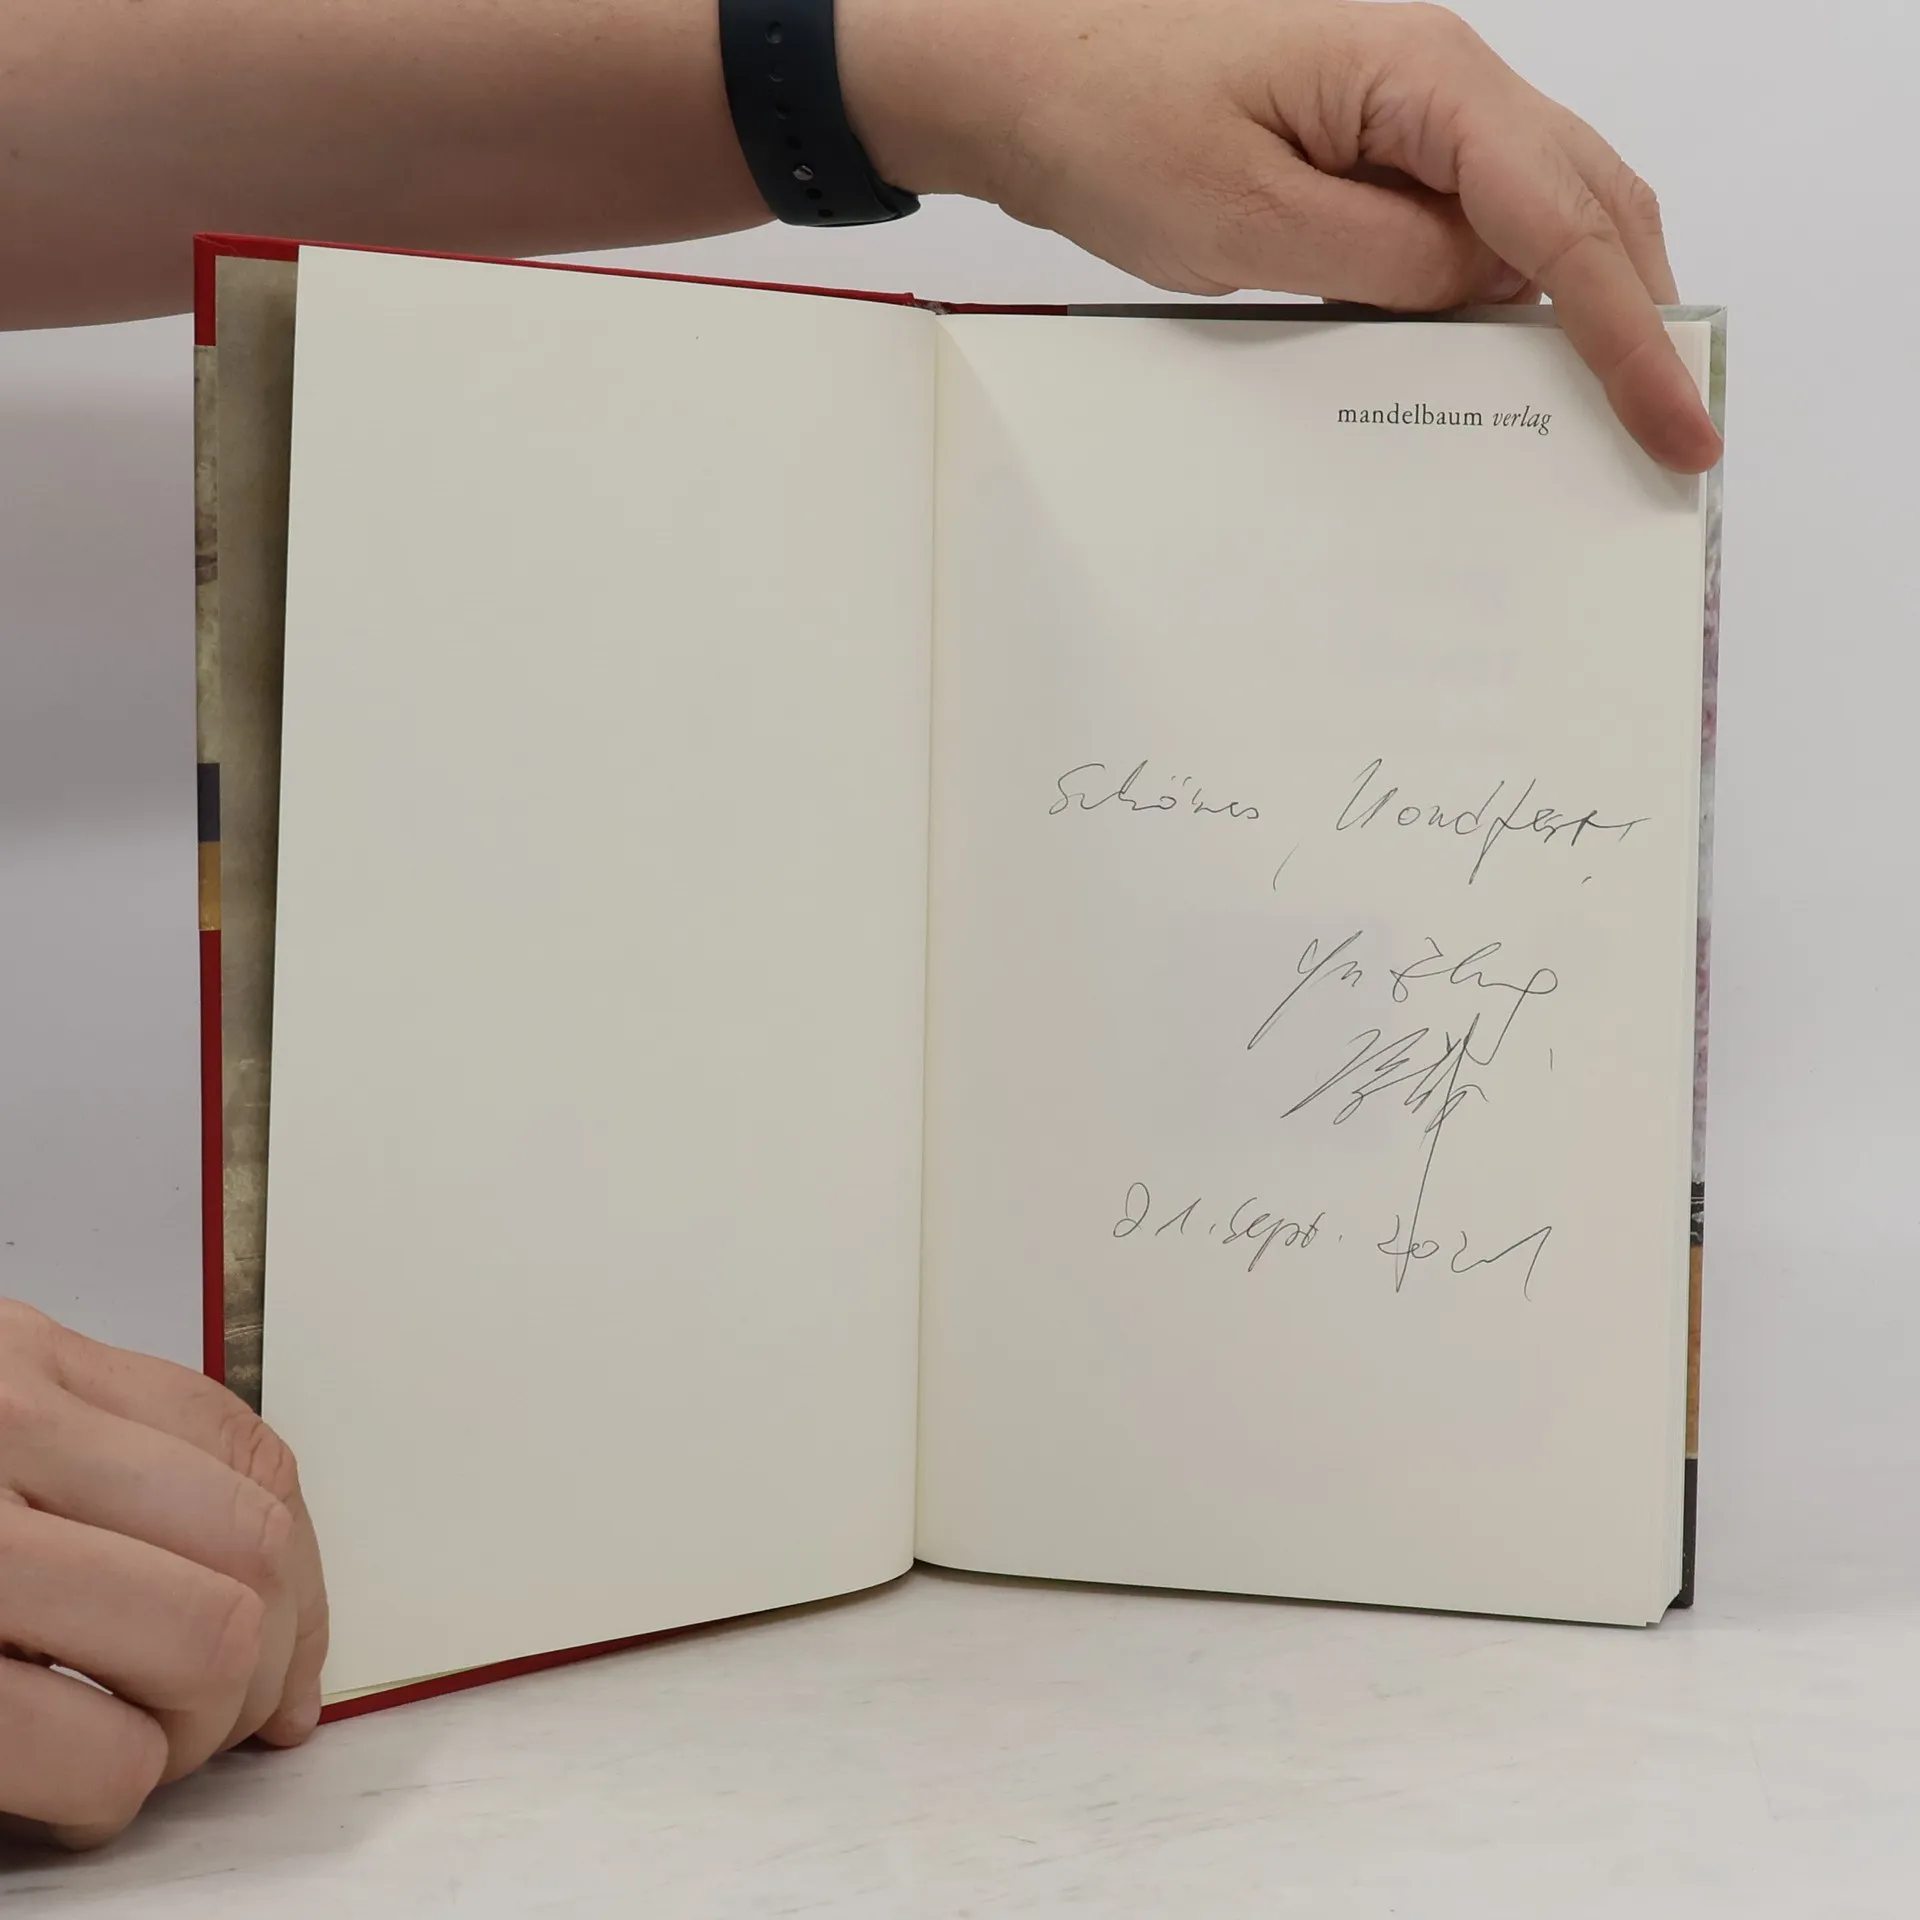 mandelbaum verlag
Schönes Mondfest,
Yu Zhang
21. Sept. 2021